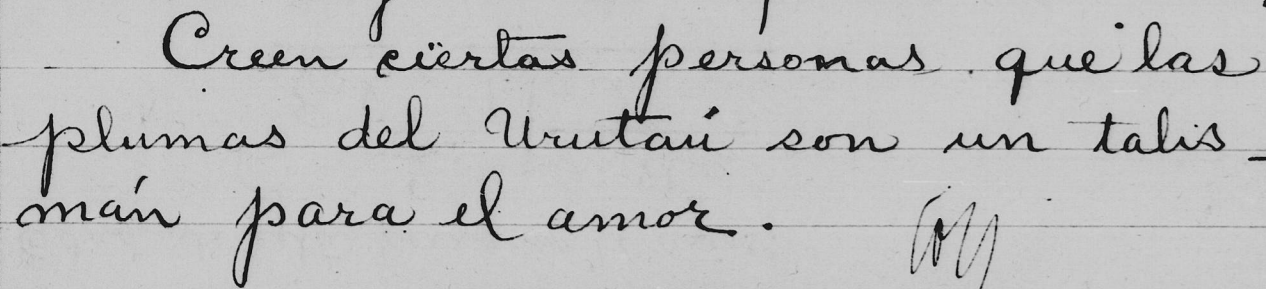 Creen ciertas personas que las
plumas del Urutaú son un talis_
mán para el amor.